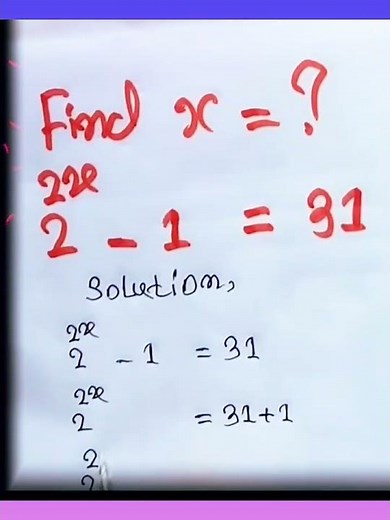 Find x = ?
2^2x - 1 = 31
Solution,
2^2x - 1 = 31
2^2x = 31+1
2